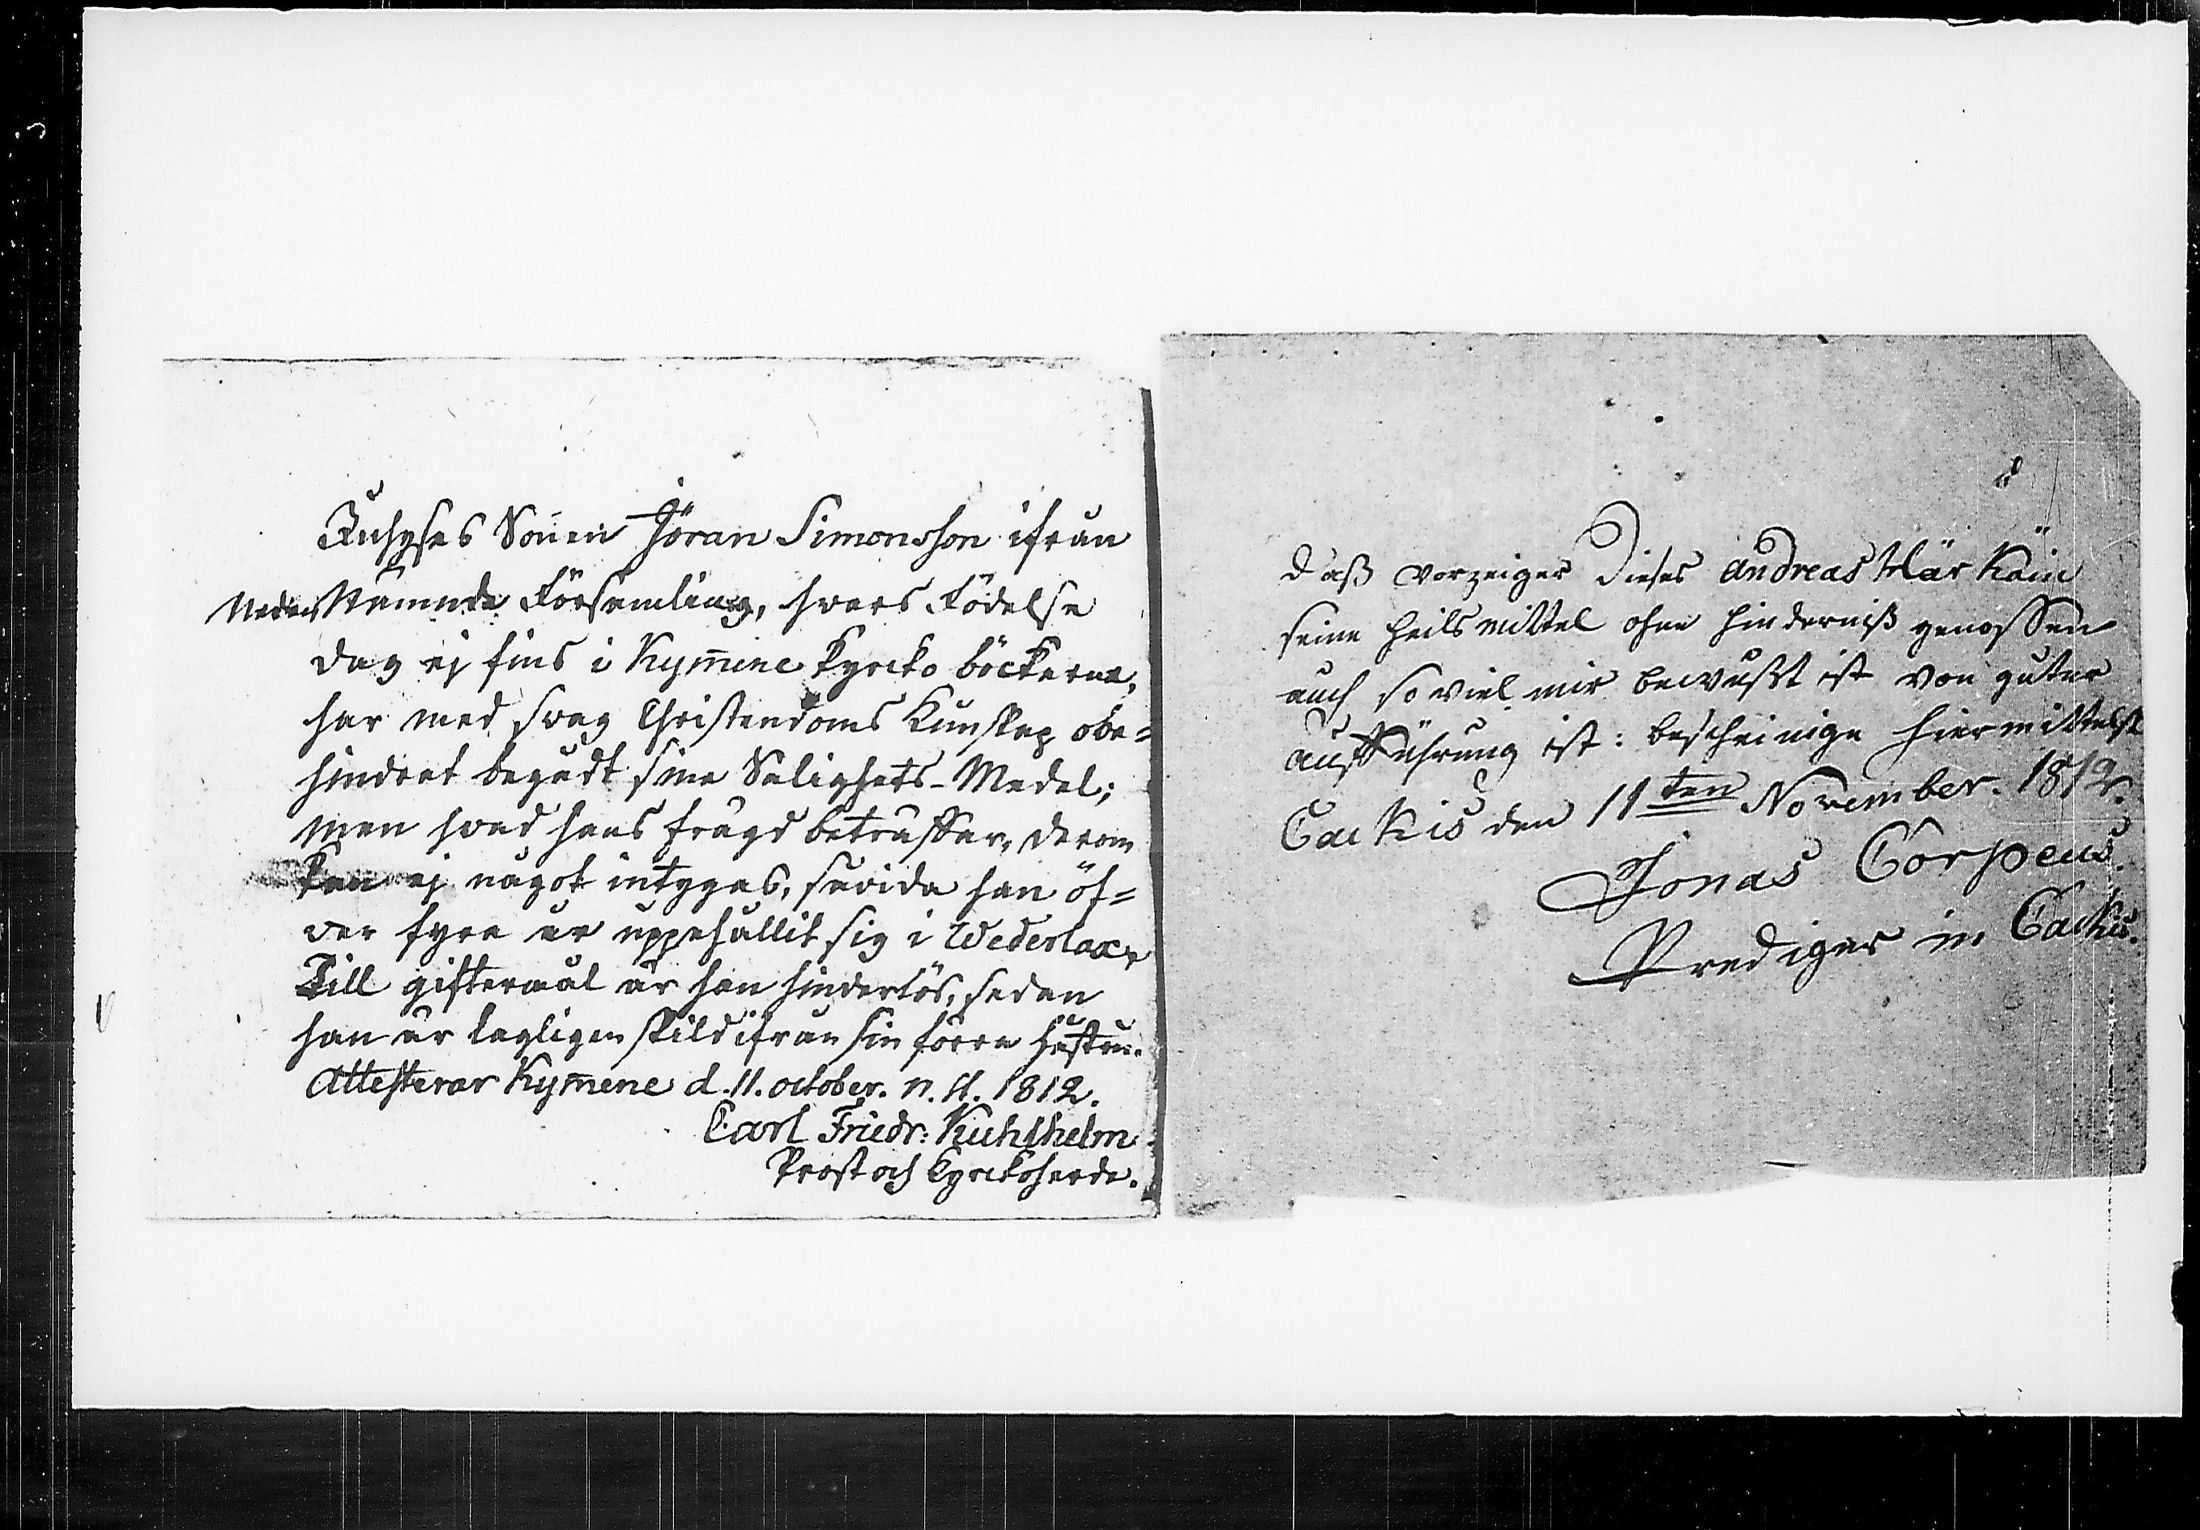 Inhyses Sonen Jöran Simonsson ifrån
Nedannämnde Församling, hvars födelse
dag ej fins i Kym̄ene kyrko böckerne,
har med svag Christendoms Kunskap obe=
hindrat begådt sine Salighets-Medel;
men hvad hans frägd beträffar, derom
kan ej något intygas, savida han öf=
ver fyra år uppehållit sig i Wederlax.
Till giftermål är han hinderlös, sedan
han är lagligen skild ifrån sin förra Hustru.
Attesterar Kym̄ene d. 11. october. n. st. 1812.
Carl Friedr: Kuhlhelm
Prost och Kyrkoherde.
Daß Vorzeiger Dieses Andreas Härkäin
seine heilsmittel ohne hinderniß genossen
auch so viel mir bewußt ist von guter
aufführung ist: bescheinige hiermittelst
den 11ten November. 1812.
Jonas Corpeus.
Prediger in